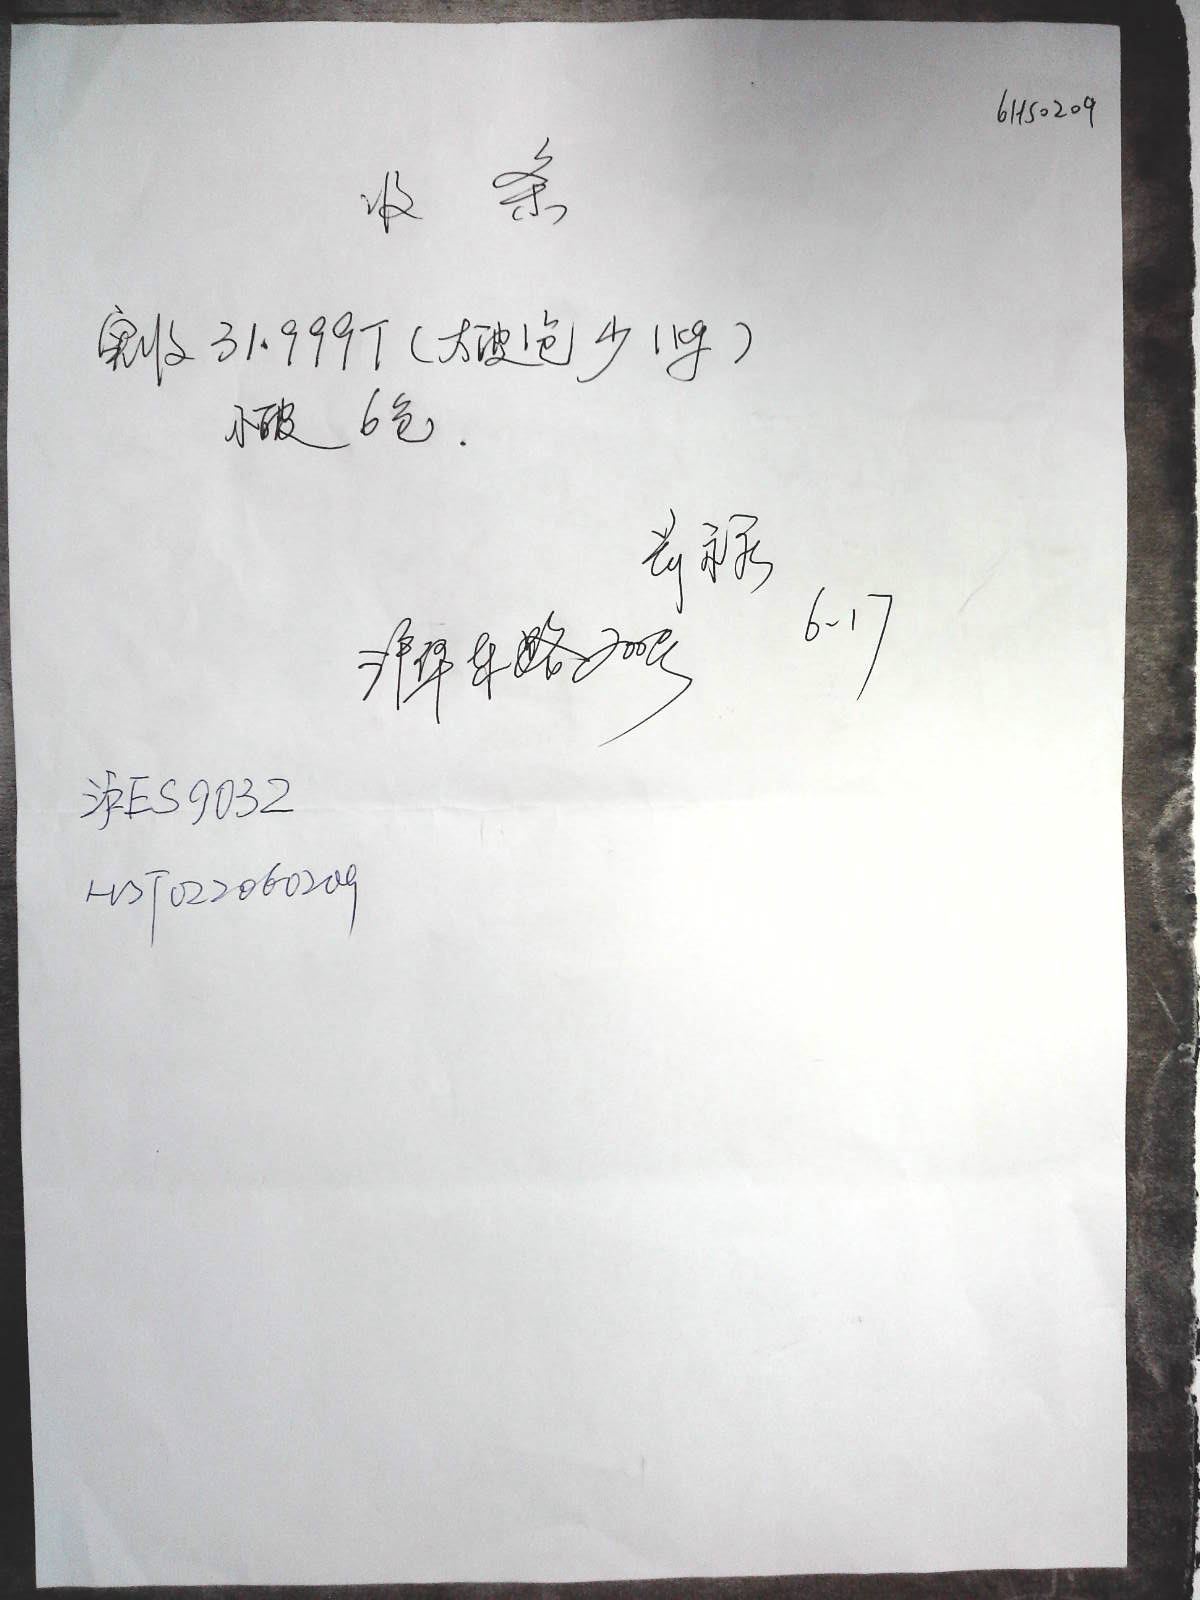 6HS0209
收条
实收31.999T(大破1包少1kg)
小破6包.
6-17
路200号
沪ES9032
HST022060209